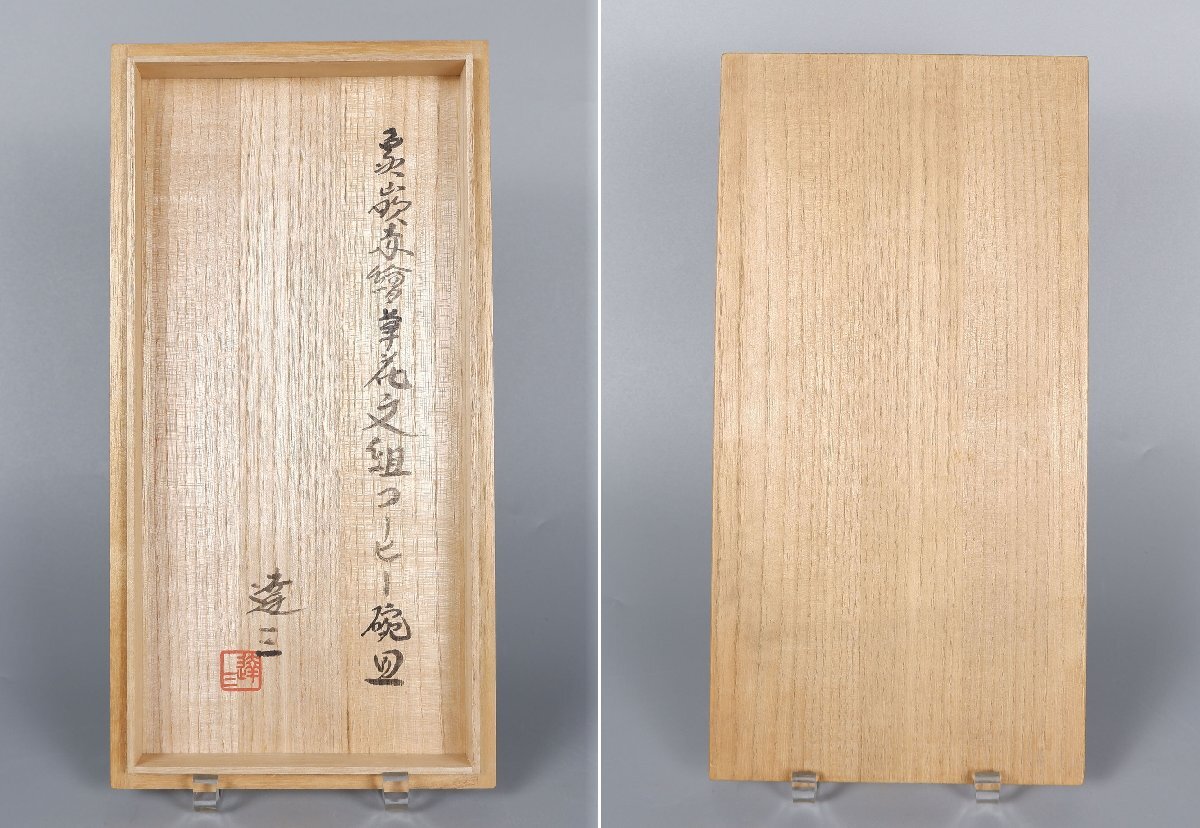 象嵌赤繪草花文組コーヒー碗皿
達三
達三